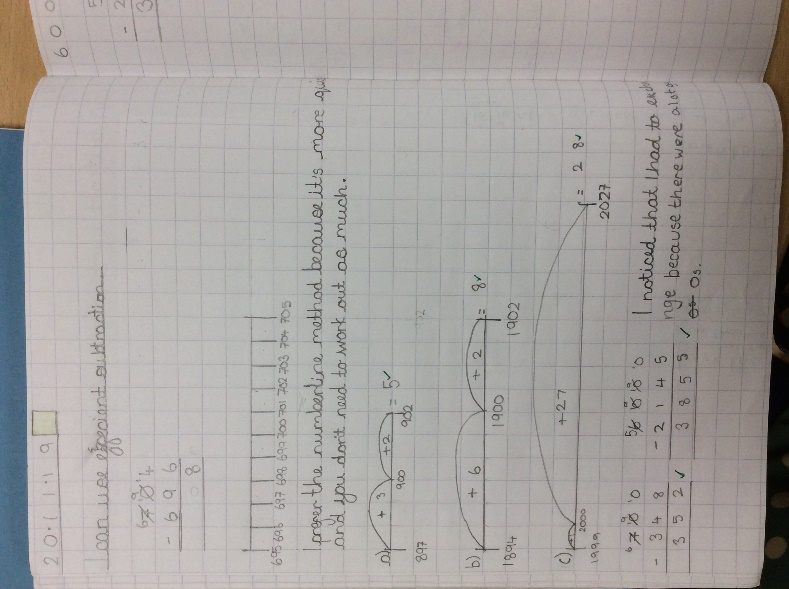 20.11.19
I can use effecient subtraction
6 9
7 0 14
- 6 9 6
8
695 696 697 698 699 700 701 702 703 704 705
I prefer the numberline method because it's more
and you don't need to work out as much.
a) + 3 +2 = 5✓
897 900 902
b) + 6 + 2 = 8✓
1894 1900 1902
c) +27 = 28✓
1999 2000 2027
6 9
7 0 10
- 3 4 8
3 5 2 ✓
5 9 9
6 0 0 10
- 2 1 4 5
3 8 5 5 ✓
I noticed that I had to
nge because there were alot
0s.
6 0 0
- 2
3